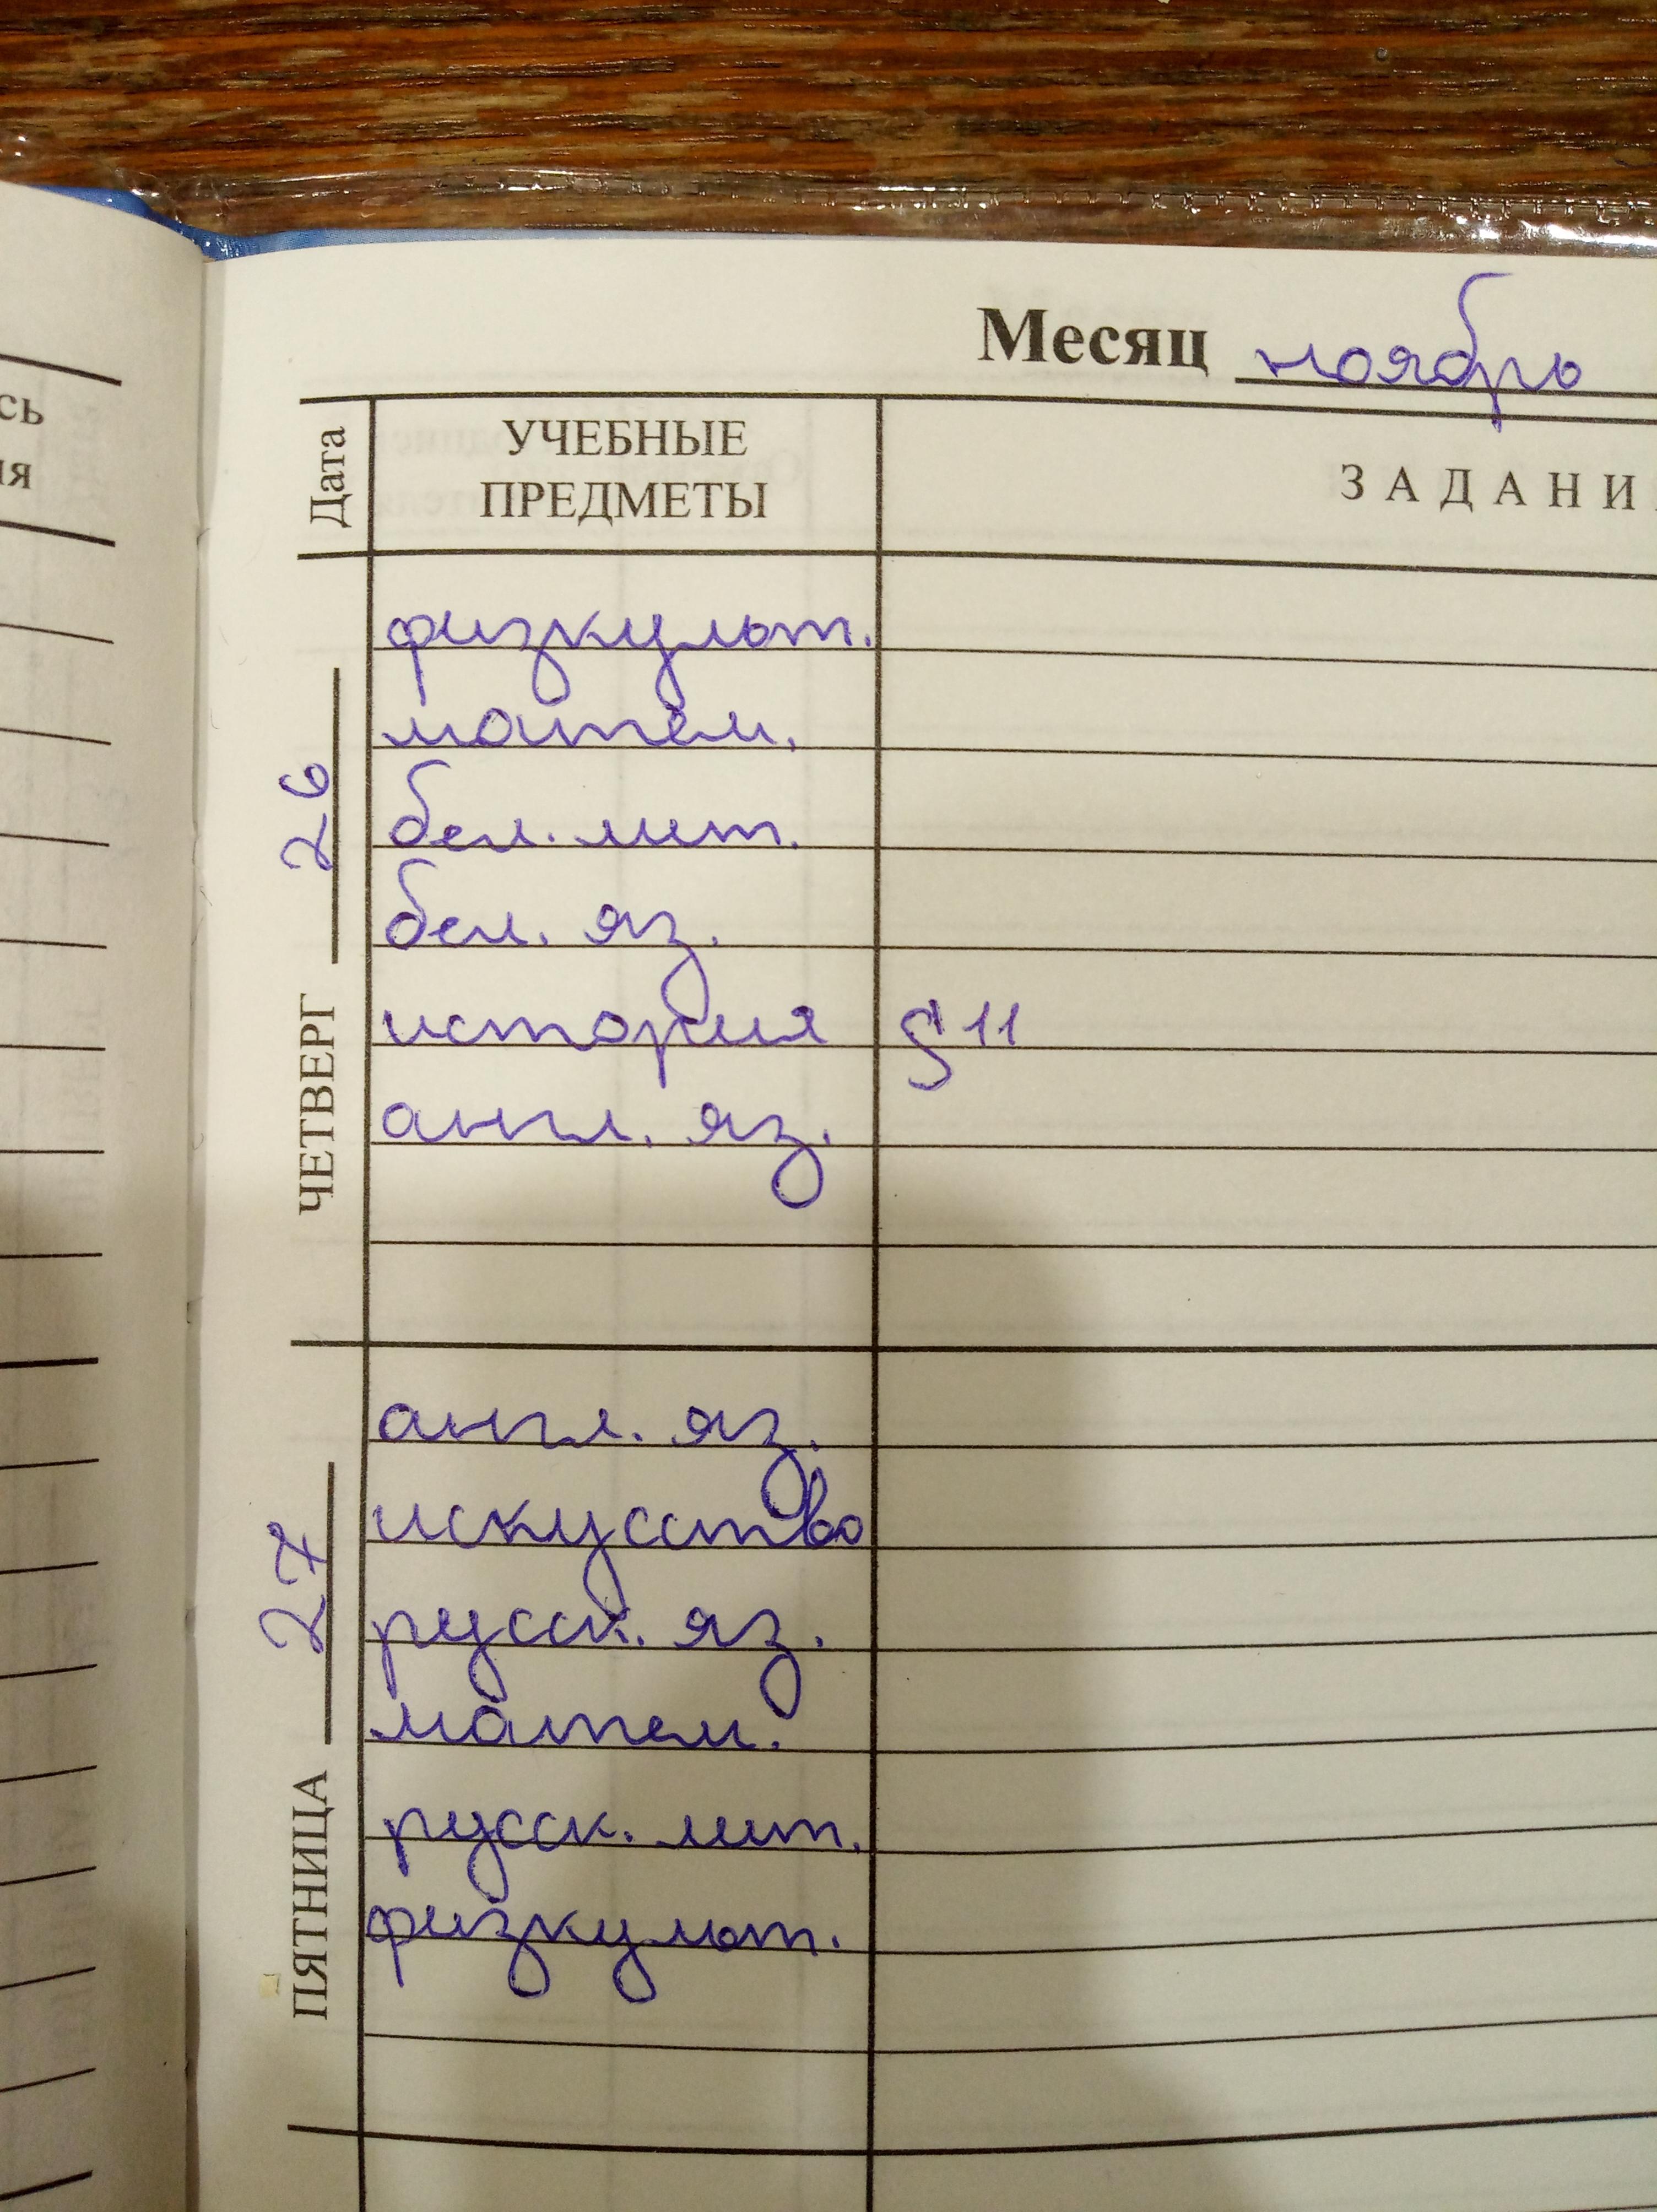 сь
ия
Месяц ноябрь
Дата
УЧЕБНЫЕ
ПРЕДМЕТЫ
ЗАДАНИ
ЧЕТВЕРГ 26
физкульт.
матем.
бел. лит.
бел. яз.
история § 11
англ. яз.
ПЯТНИЦА 27
англ. яз.
искусство
русск. яз.
матем.
русск. лит.
физкульт.